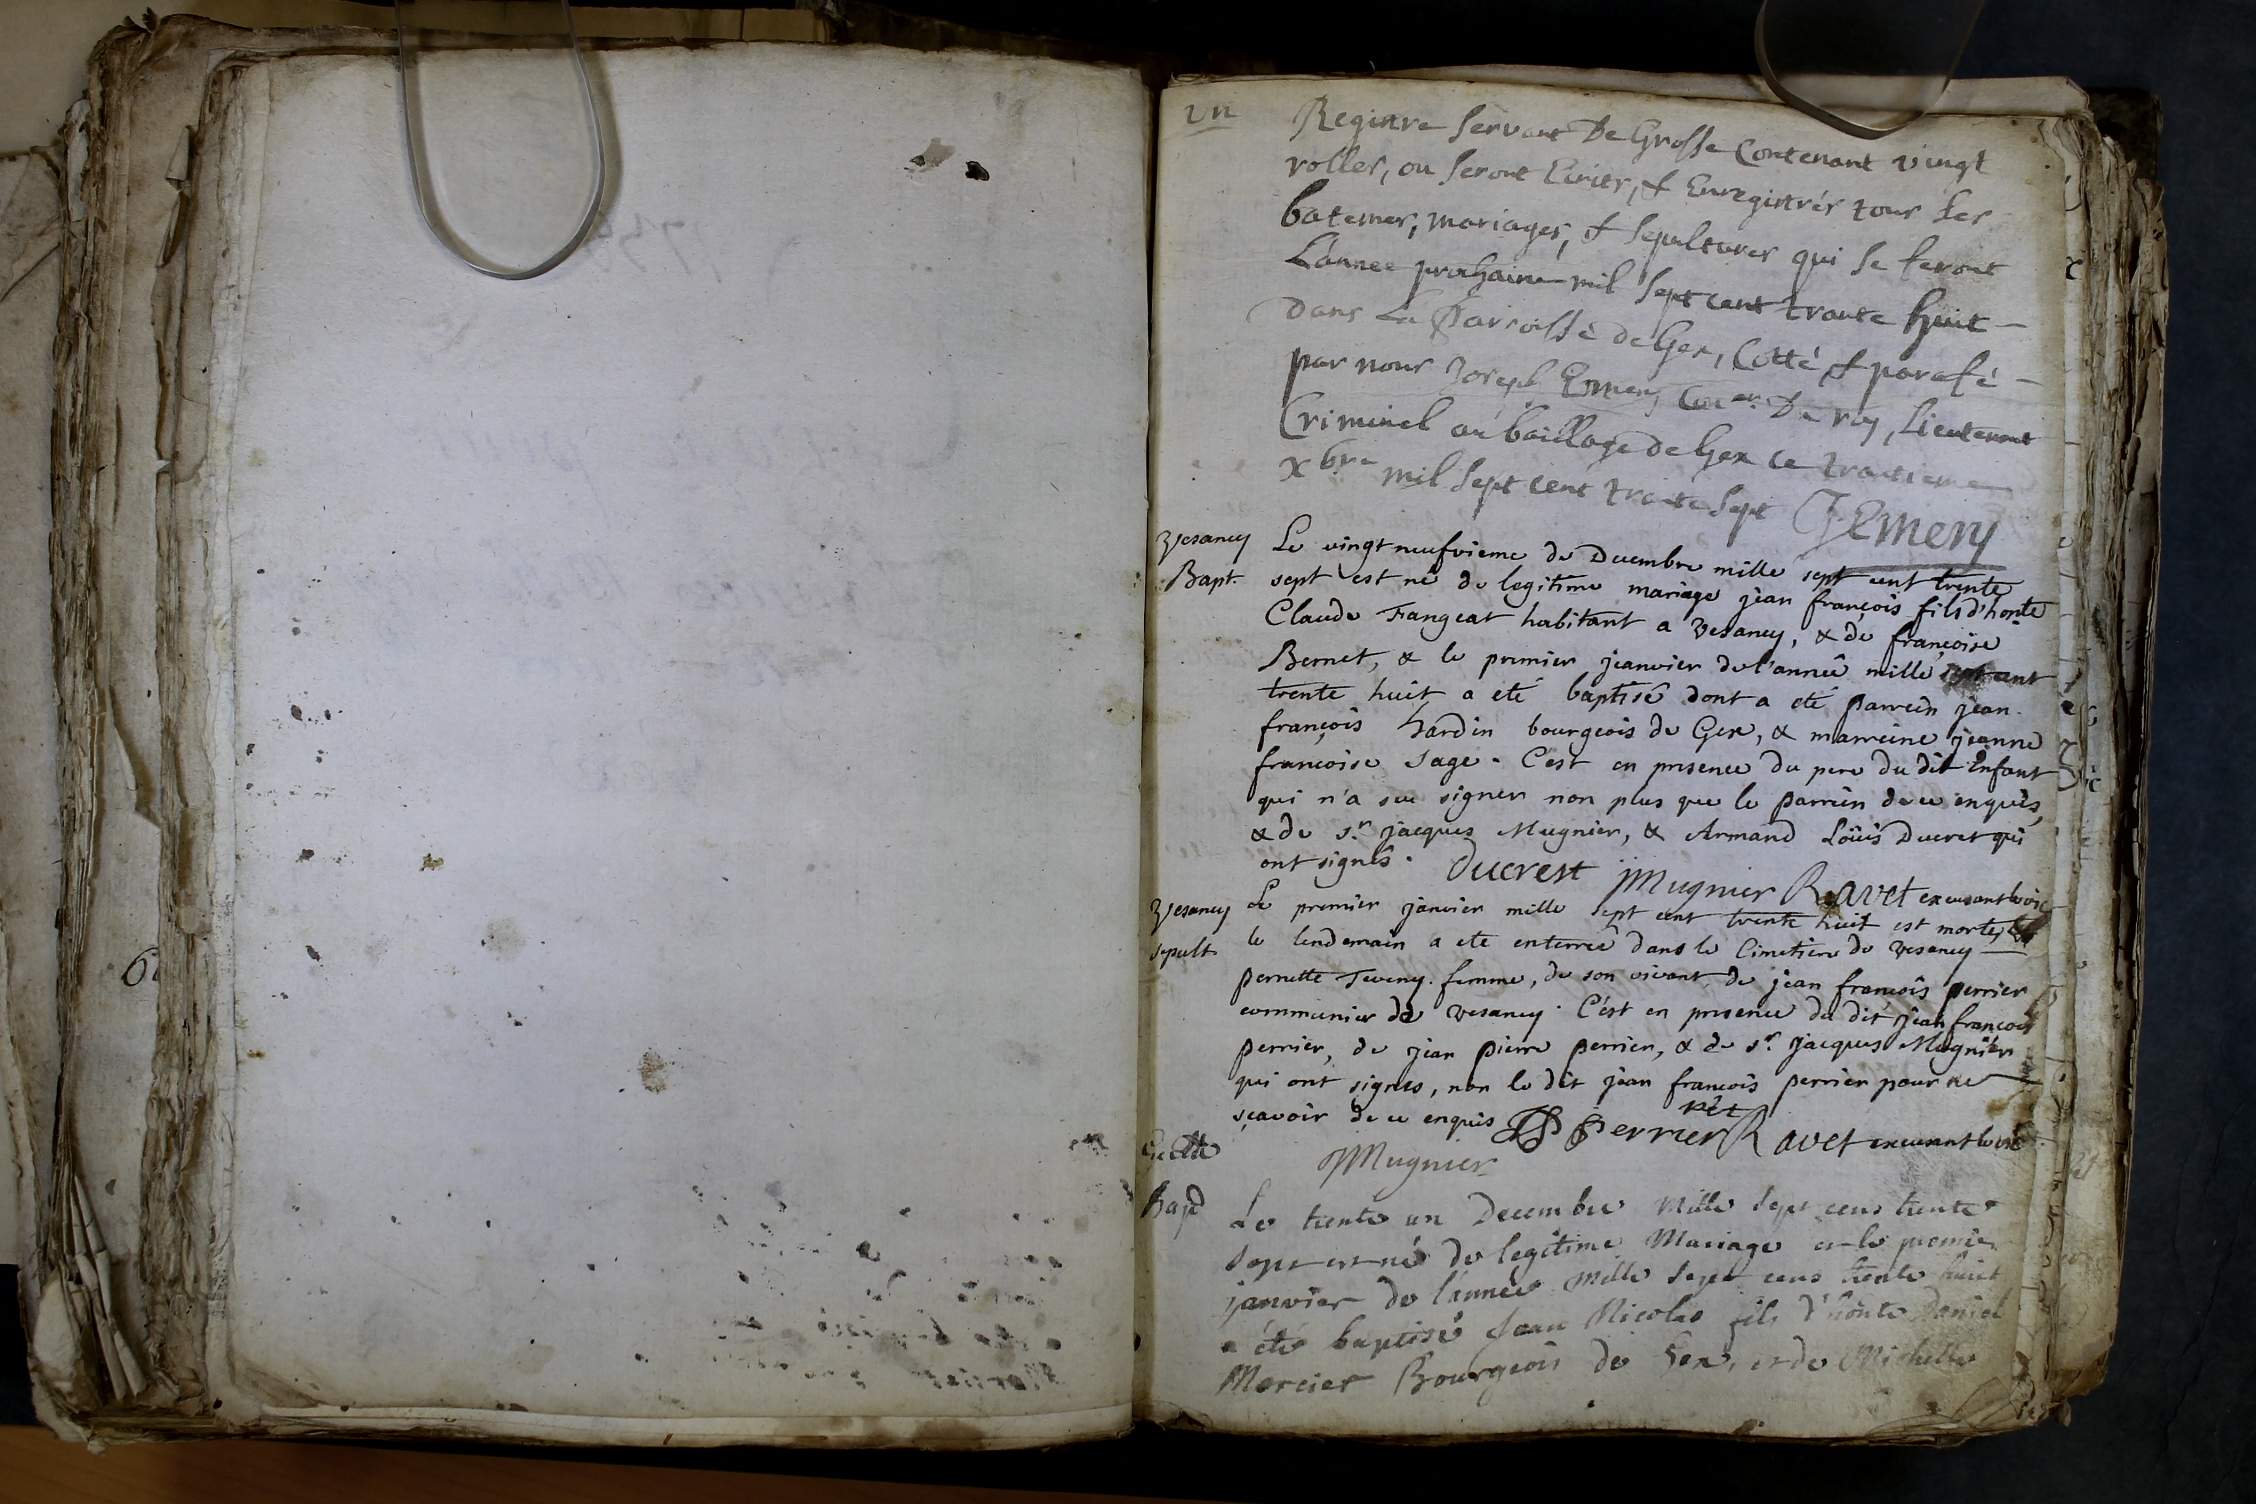 un
Registre servant De Grosse Contenant vingt
rolles, ou seront Ecrits, & Enregistrés tous Les
batemes, mariages, & sepultures qui se feront
L'annee prochaine mil sept cent trante huit
dans La Parroisse de Gex, Cotté & parafé
par nous Joseph Emery Con.er De roy, Lieutenant
Criminel au bailliage de Gex ce trantieme
Xbre mil sept cent trante sept JEmery
Vesancy
Bapt.
Le vingt neufvieme de Decembre mille sept cent trente
sept est né de legitime mariage jean françois fils d'honte
Claude Fangeat habitant a Vesancy, & de françoise
Bernet, & le premier jeanvier de l'anneé mille sept cent
trente huit a eté baptisé dont a eté parrein jean
françois hardin bourgeois de Gex, & marreine jeanne
francoise Sage. C'est en presence du pere du dit Enfant
qui n'a sceu signer non plus que le parrein de ce enquis,
& de sr. jacques Mugnier, & Armand Loüis Ducret qui
ont signés. Ducrest JMugnier Ravet exerceant le vic
Vesancy
sepult.
Le premier janvier mille sept cent trente huit est morte, &
le lendemain a ete enterreé dans le Cimetiere de Vesancy
pernette Teveny femme, de son vivant, de jean francois perrier
communier de Vesancy. C'est en presence du dit jean francois
perrier, de jean pierre perrier, & de sr. jacques Mugnier
qui ont signés, non le dit jean francois perrier pour ne
sçavoir de ce enquis JP Perrier Ravet pêt exerceant le vic
JMugnier
Bap
Le trente un Decembre Mille Sept cens trente
Sept est né de legitime Mariage et le premier
janvier de l'année Mille Sept cens trente huit
a été baptisé Jean Nicolas fils d'honte Daniel
Mercier Bourgeois de Gex, et de Michelle